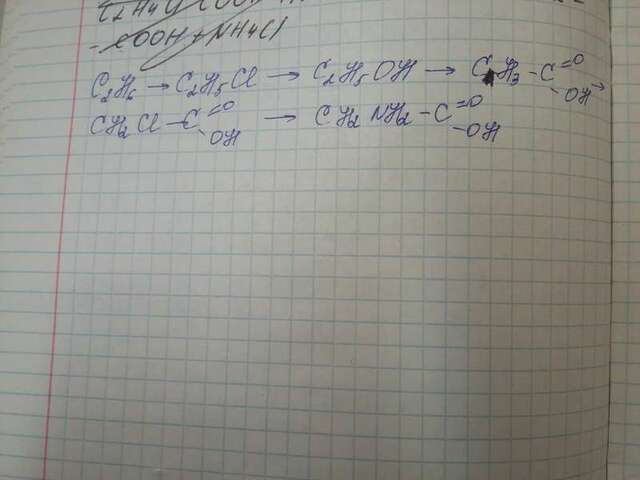 - COOH + NH4Cl
C2H6 → C2H5Cl → C2H5OH → CH3 - C =O - OH →
CH2Cl - C =O - OH → CH2NH2 - C =O - OH